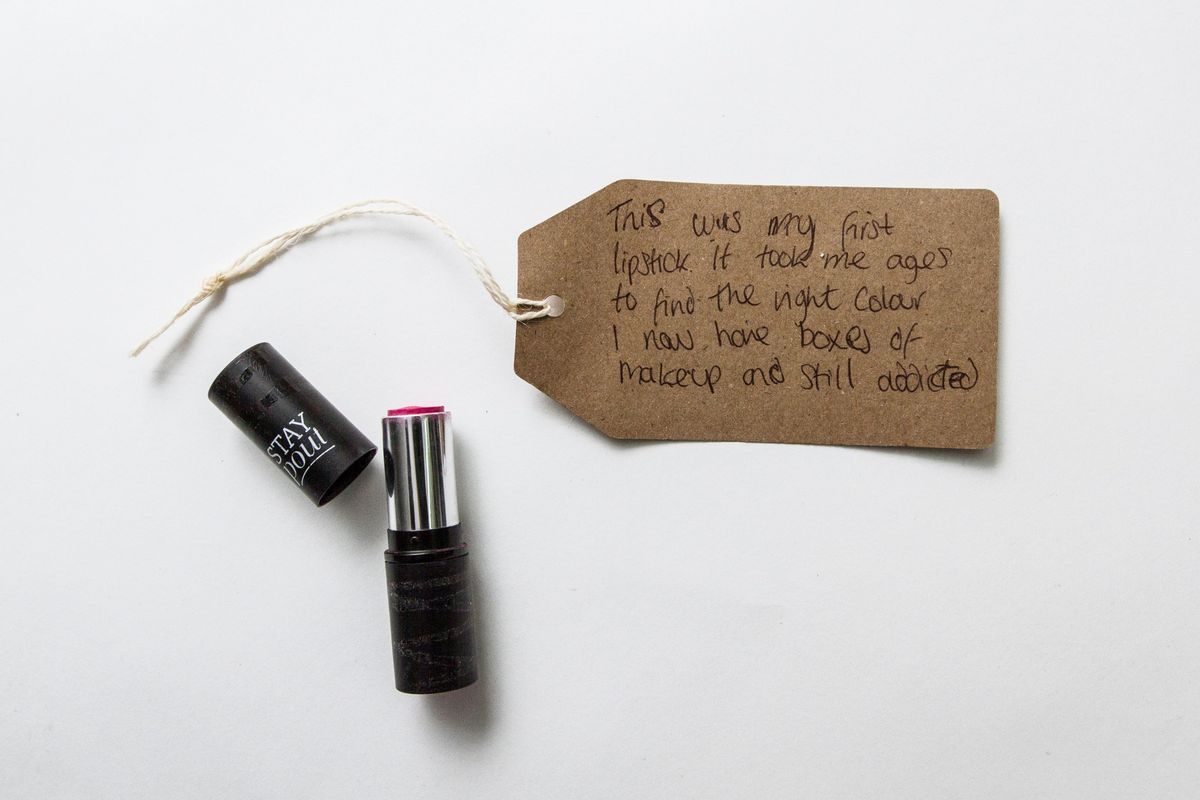 This was my first
lipstick. It took me ages
to find the right colour
I now have boxes of
makeup and still addicted
STAY
pout